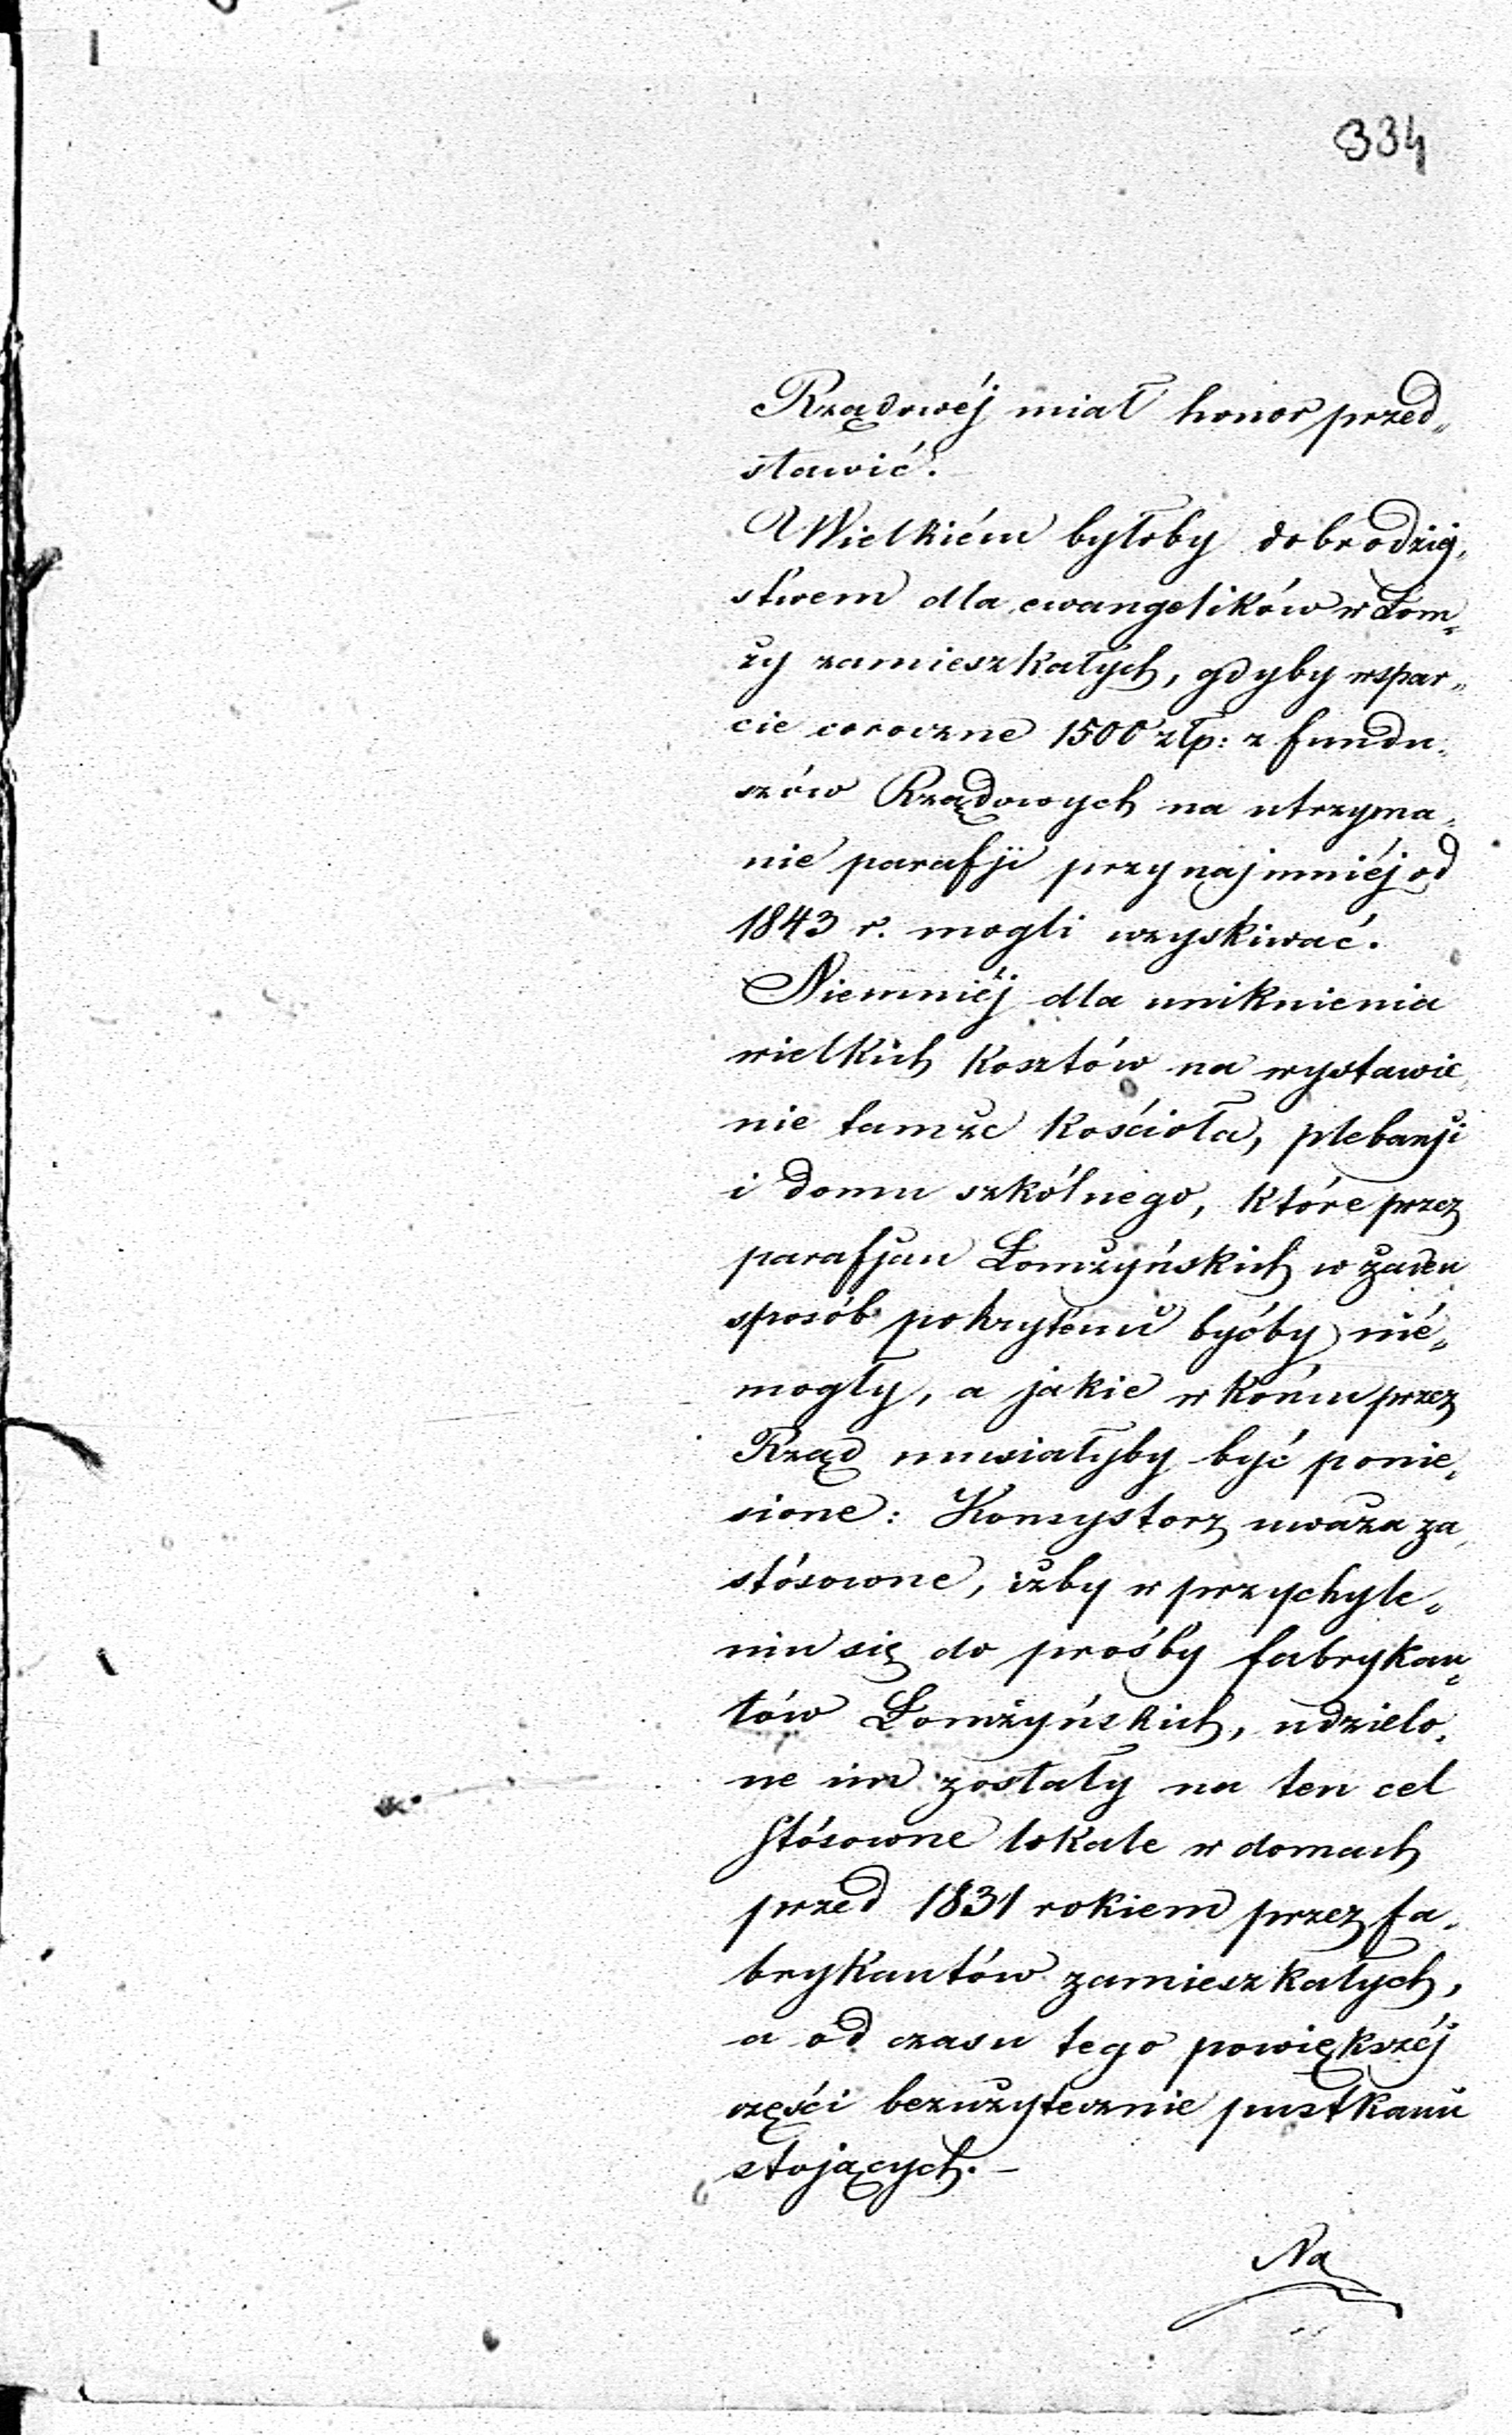 334
Rządowéj miał honor przed„
stawić.
Wielkiém byłoby dobrodziej„
stwem dla ewangelików w Łom„
ży zamieszkałych, gdyby wspar„
cie coroczne 1500 złp: z fundu„
szów Rządowych na utrzyma„
nie parafji przynajmniéj od
1843 r. mogli uzyskiwać.
Niemniéj dla uniknienia
wielkich kosztów na wystawie„
nie tamże kościoła, plebanji
i domu szkólnego, które przez
parafjan Łomżyńskich w żaden
sposób pokrytemi byóby nié„
mogły, a jakie w końcu przez
Rząd musiałyby być ponie„
sione: Konsystorz uważa za
stósowne, iżby w przychyle„
niu się do prośby fabrykan„
tów Łomżyńskich, udzielo„
ne im zostały na ten cel
stósowne lokale w domach
przed 1831 rokiem przez fa„
brykantów zamieszkałych,
a od czasu tego powiększéj
części bezużytecznie pustkami
stojących. –
Na